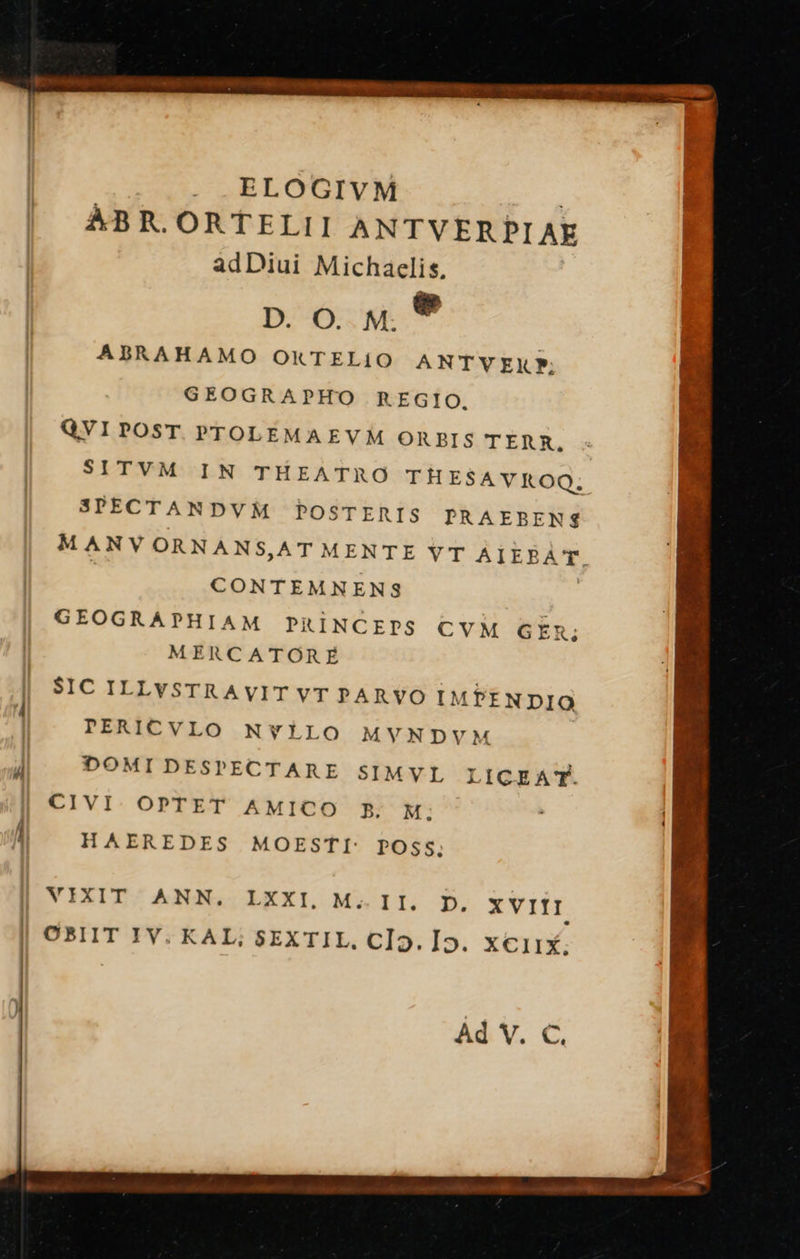 ELOGIVM
ABR. ORTELII ANTVERPIAE
ad Diui Michaelis.
D. O. M.
ABRAHAMO ORTELIO ANTVERP.
GEOGRAPHO REGIO.
QVI POST PTOLEMAEVM ORBIS TERR.
SITVM IN THEATRO THESAVROQ.
SPECTANDVM POSTERIS PRAEBENS
MANV ORNANS, AT MENTE VT AIEBAT
CONTEMNENS
GEOGRAPHIAM PRINCEPS CVM GER.
MERCATORE
SIC ILLVSTRAVIT VT PARVO IMPENDIO
PERICVLO NVLLO MVNDVM
DOMI DESPECTARE SIMVL LICEAT.
CIVI OPTET AMICO B. M.
HAEREDES MOESTI POSS.
VIXIT ANN. LXXI. M. II. D. XVIII
OBIIT IV. KAL. SEXTIL. CIↃ. IↃ. XCIIX.
Ad V. C.